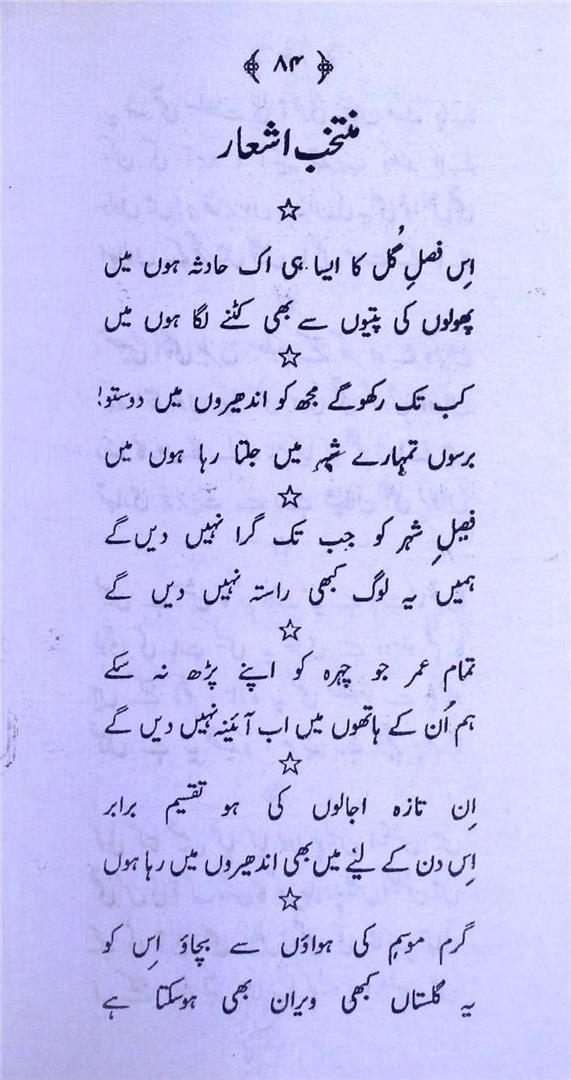 ﴿ ۸۴ ﴾
منتخب اشعار
☆
اِس فصلِ گُل کا ایسا ہی اک حادثہ ہوں میں
پھولوں کی پتیوں سے بھی کٹنے لگا ہوں میں
☆
کب تک رکھو گے مجھ کو اندھیروں میں دوستو!
برسوں تمہارے شہر میں جلتا رہا ہوں میں
☆
فصیلِ شہر کو جب تک گرا نہیں دیں گے
ہمیں یہ لوگ کبھی راستہ نہیں دیں گے
☆
تمام عمر جو چہرہ کو اپنے پڑھ نہ سکے
ہم اُن کے ہاتھوں میں اب آئینہ نہیں دیں گے
☆
اِن تازہ اجالوں کی ہو تقسیم برابر
اِس دن کے لئے میں بھی اندھیروں میں رہا ہوں
☆
گرم موسم کی ہواؤں سے بچاؤ اِس کو
یہ گلستاں کبھی ویران بھی ہوسکتا ہے